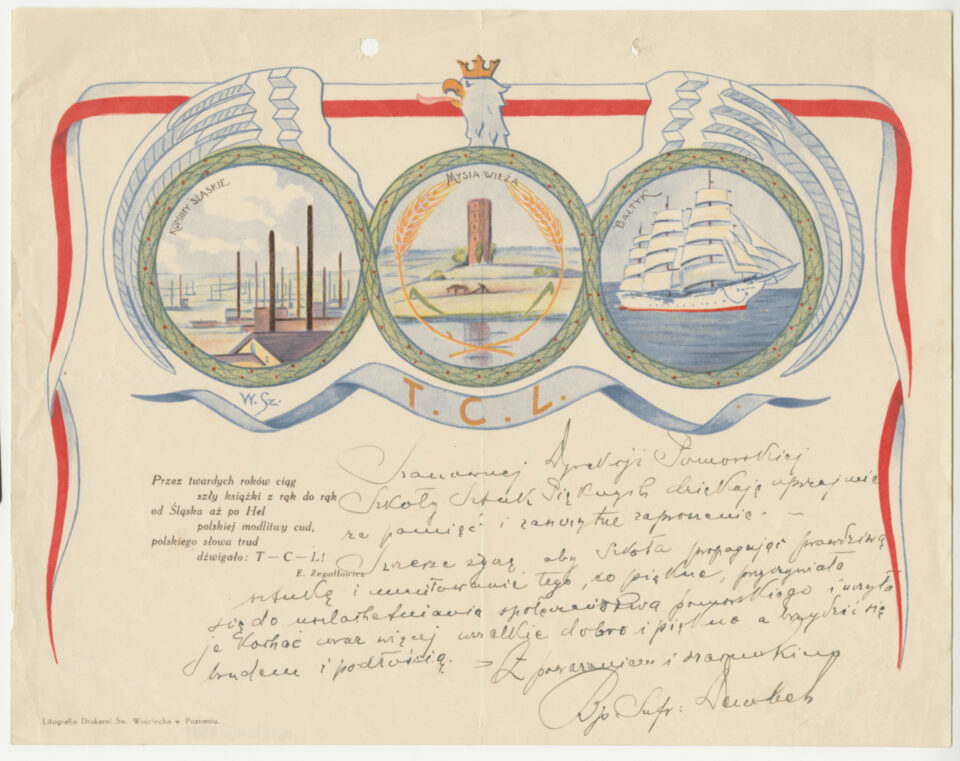 KOMINY ŚLĄSKIE
MYSIA WIEŻA
BAŁTYK
W. Sz.
T. C. L.
Przez twardych roków ciąg
szły książki z rąk do rąk
od Śląska aż po Hel
polskiej modlitwy cud,
polskiego słowa trud
dźwigało: T — C — L!
E. Zegadłowicz
Szanownej Dyrekcji Pomorskiej
Szkoły Sztuk Pięknych dziękuję uprzejmie
za pamięć i zaszczytne zaproszenie. —
Szczerze życzę, aby Szkoła propagując prawdziwą
sztukę i umiłowanie tego, co piękne, przyczyniała
się do uszlachetniania społeczeństwa pomorskiego i uczyła
je kochać coraz więcej wszelkie dobro i piękno a brzydzić się
brudem i podłością. — Z poważaniem i szacunkiem
Bp. Sufr. Dominik
Litografia Drukarni Św. Wojciecha w Poznaniu.